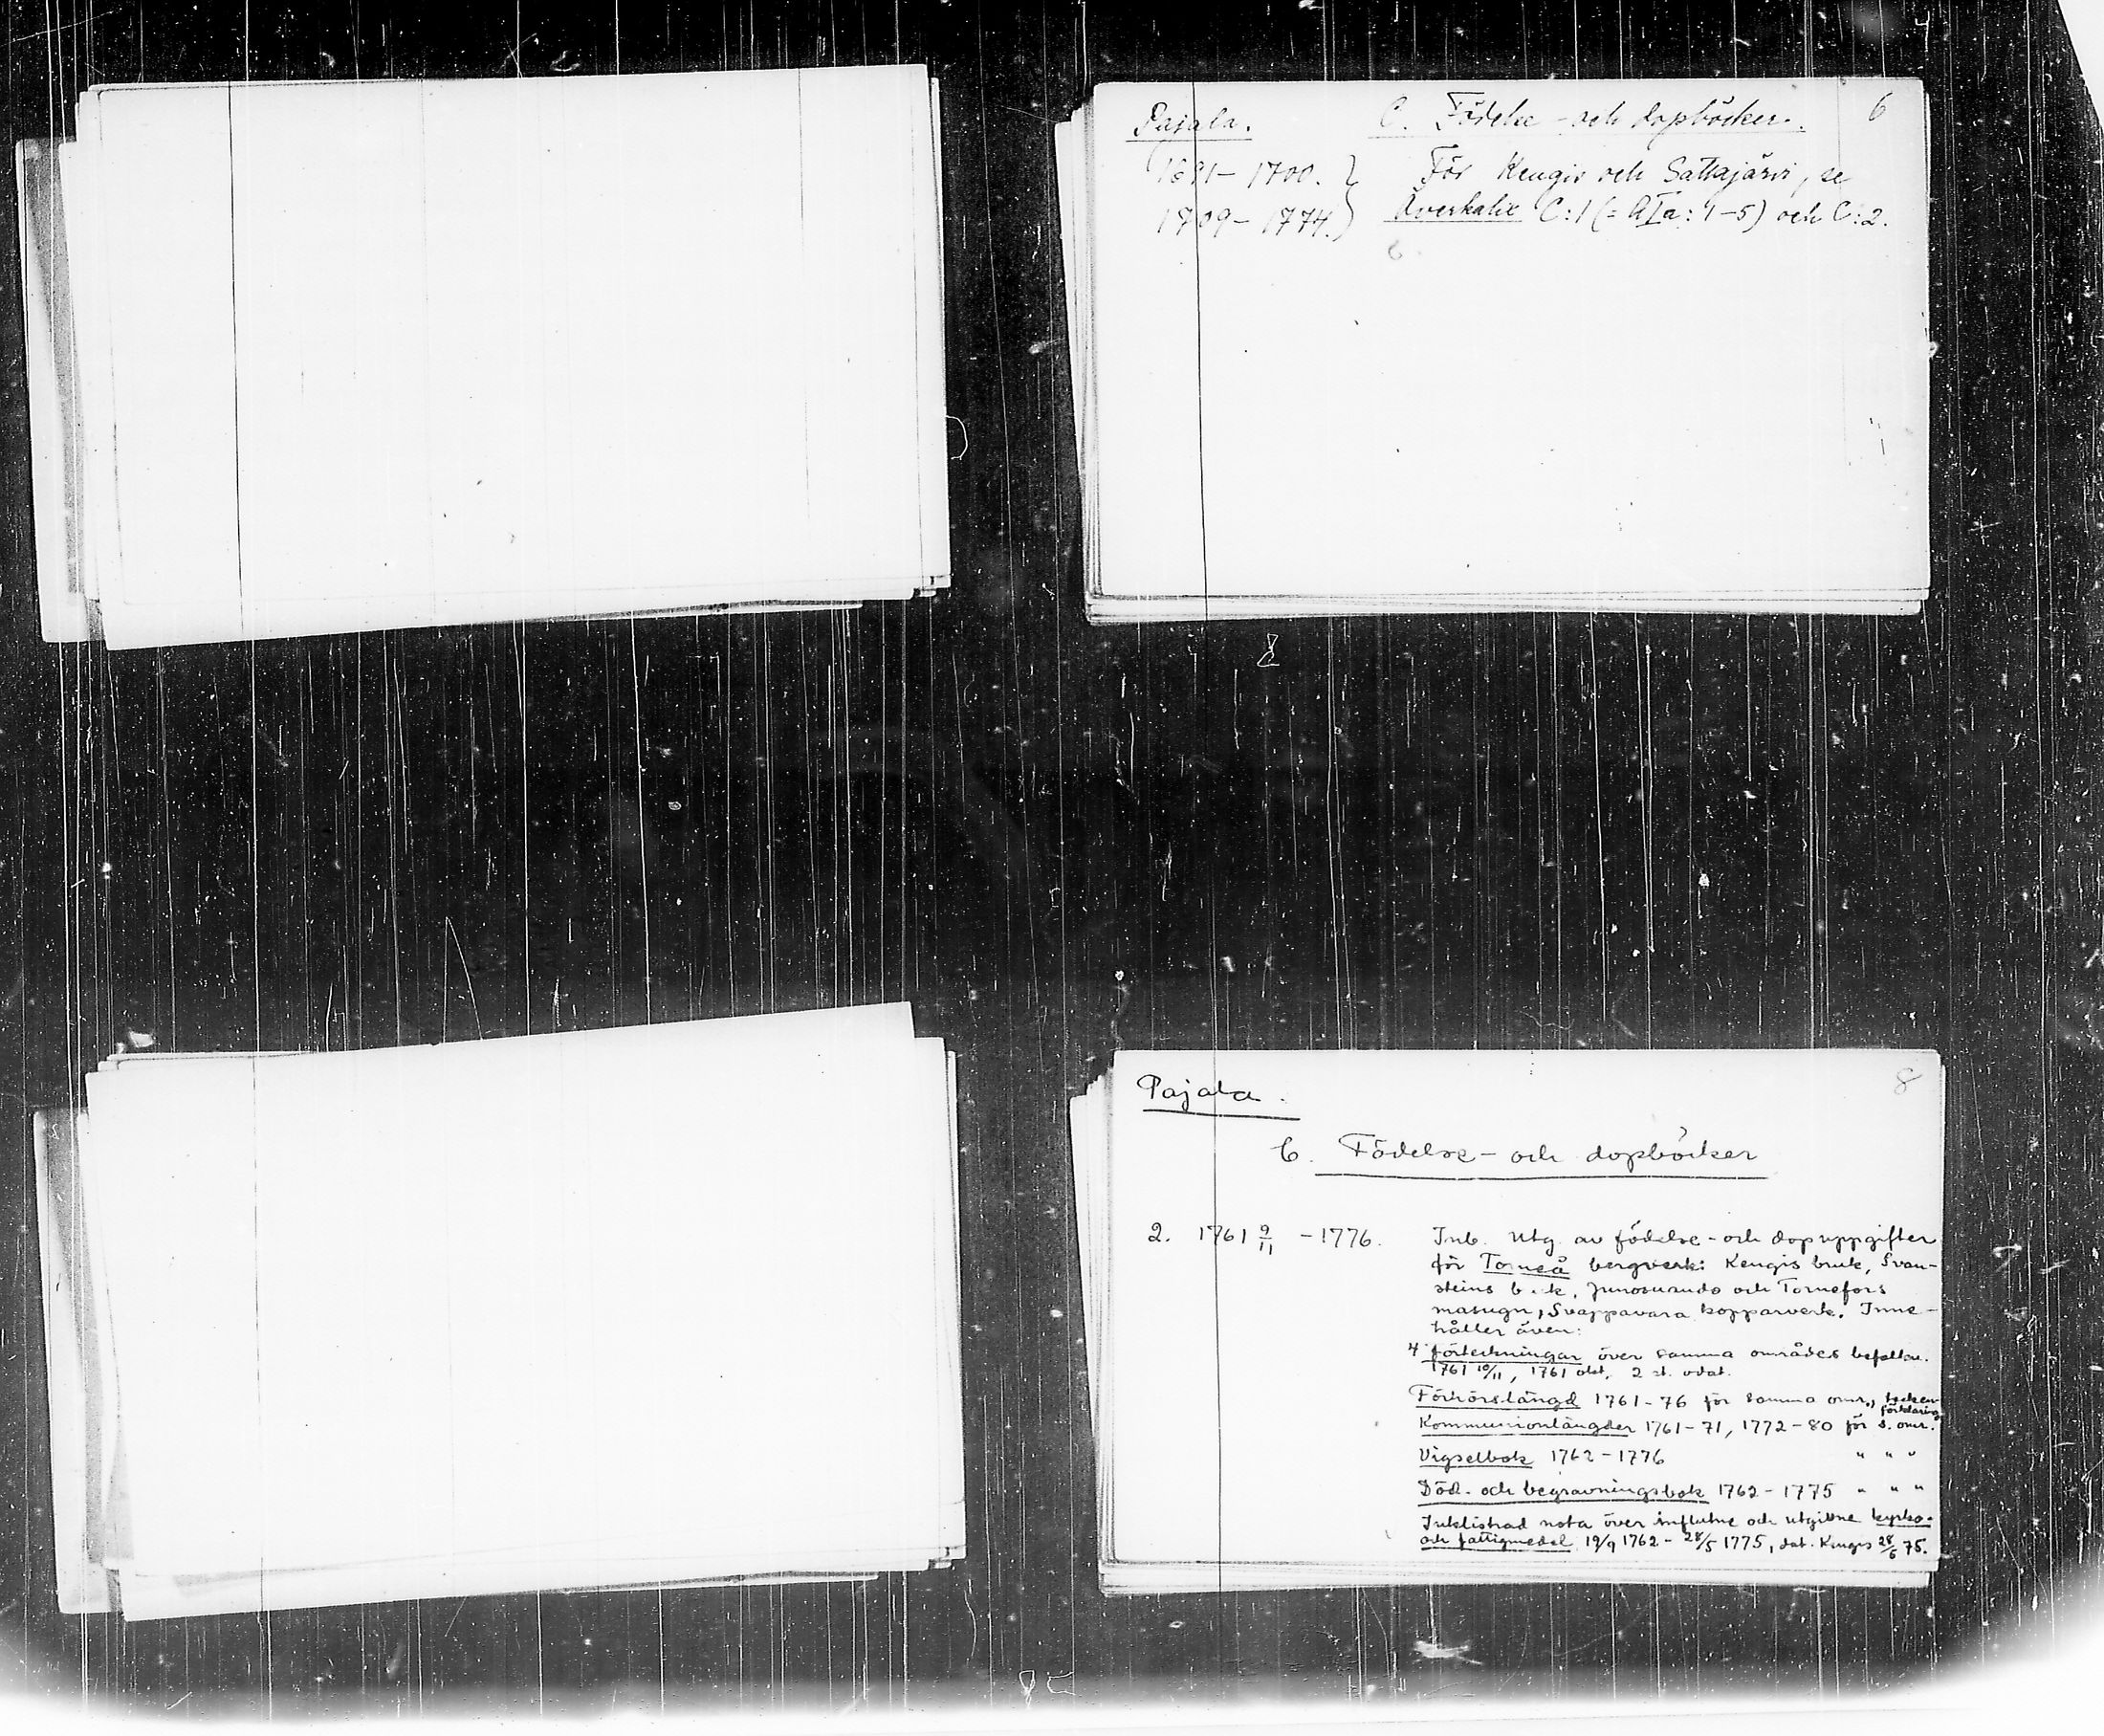 Pajala. C. Födelse- och dopböcker. 6
1691 – 1700. } För Kengis och Sattajärvi, se
1709 – 1774. } Överkalix C:1 (= AIa: 1–5) och C:2.
Pajala. 8
C. Födelse- och dopböcker
2. 1761 9/11 – 1776. Inb. Utg. av födelse- och dopuppgifter
för Torneå bergverk: Kengis bruk, Svan-
steins b.k, Junosuando och Tornefors
masugn, Svappavara kopparverk. Inne-
håller även:
4 förteckningar över samma områdes befolkn.
1761 10/11, 1761 okt, 2 st. odat.
Förhörslängd 1761-76 för samma omr., tecken-
förklaring
Kommunionlängder 1761-71, 1772-80 för s. omr.
Vigselbok 1762-1776 " " "
Död- och begravningsbok 1762-1775 " " "
och utgivne kyrko-
och fattigmedel 19/9 1762 – 28/5 1775, dat. Kengis 28/5 75.